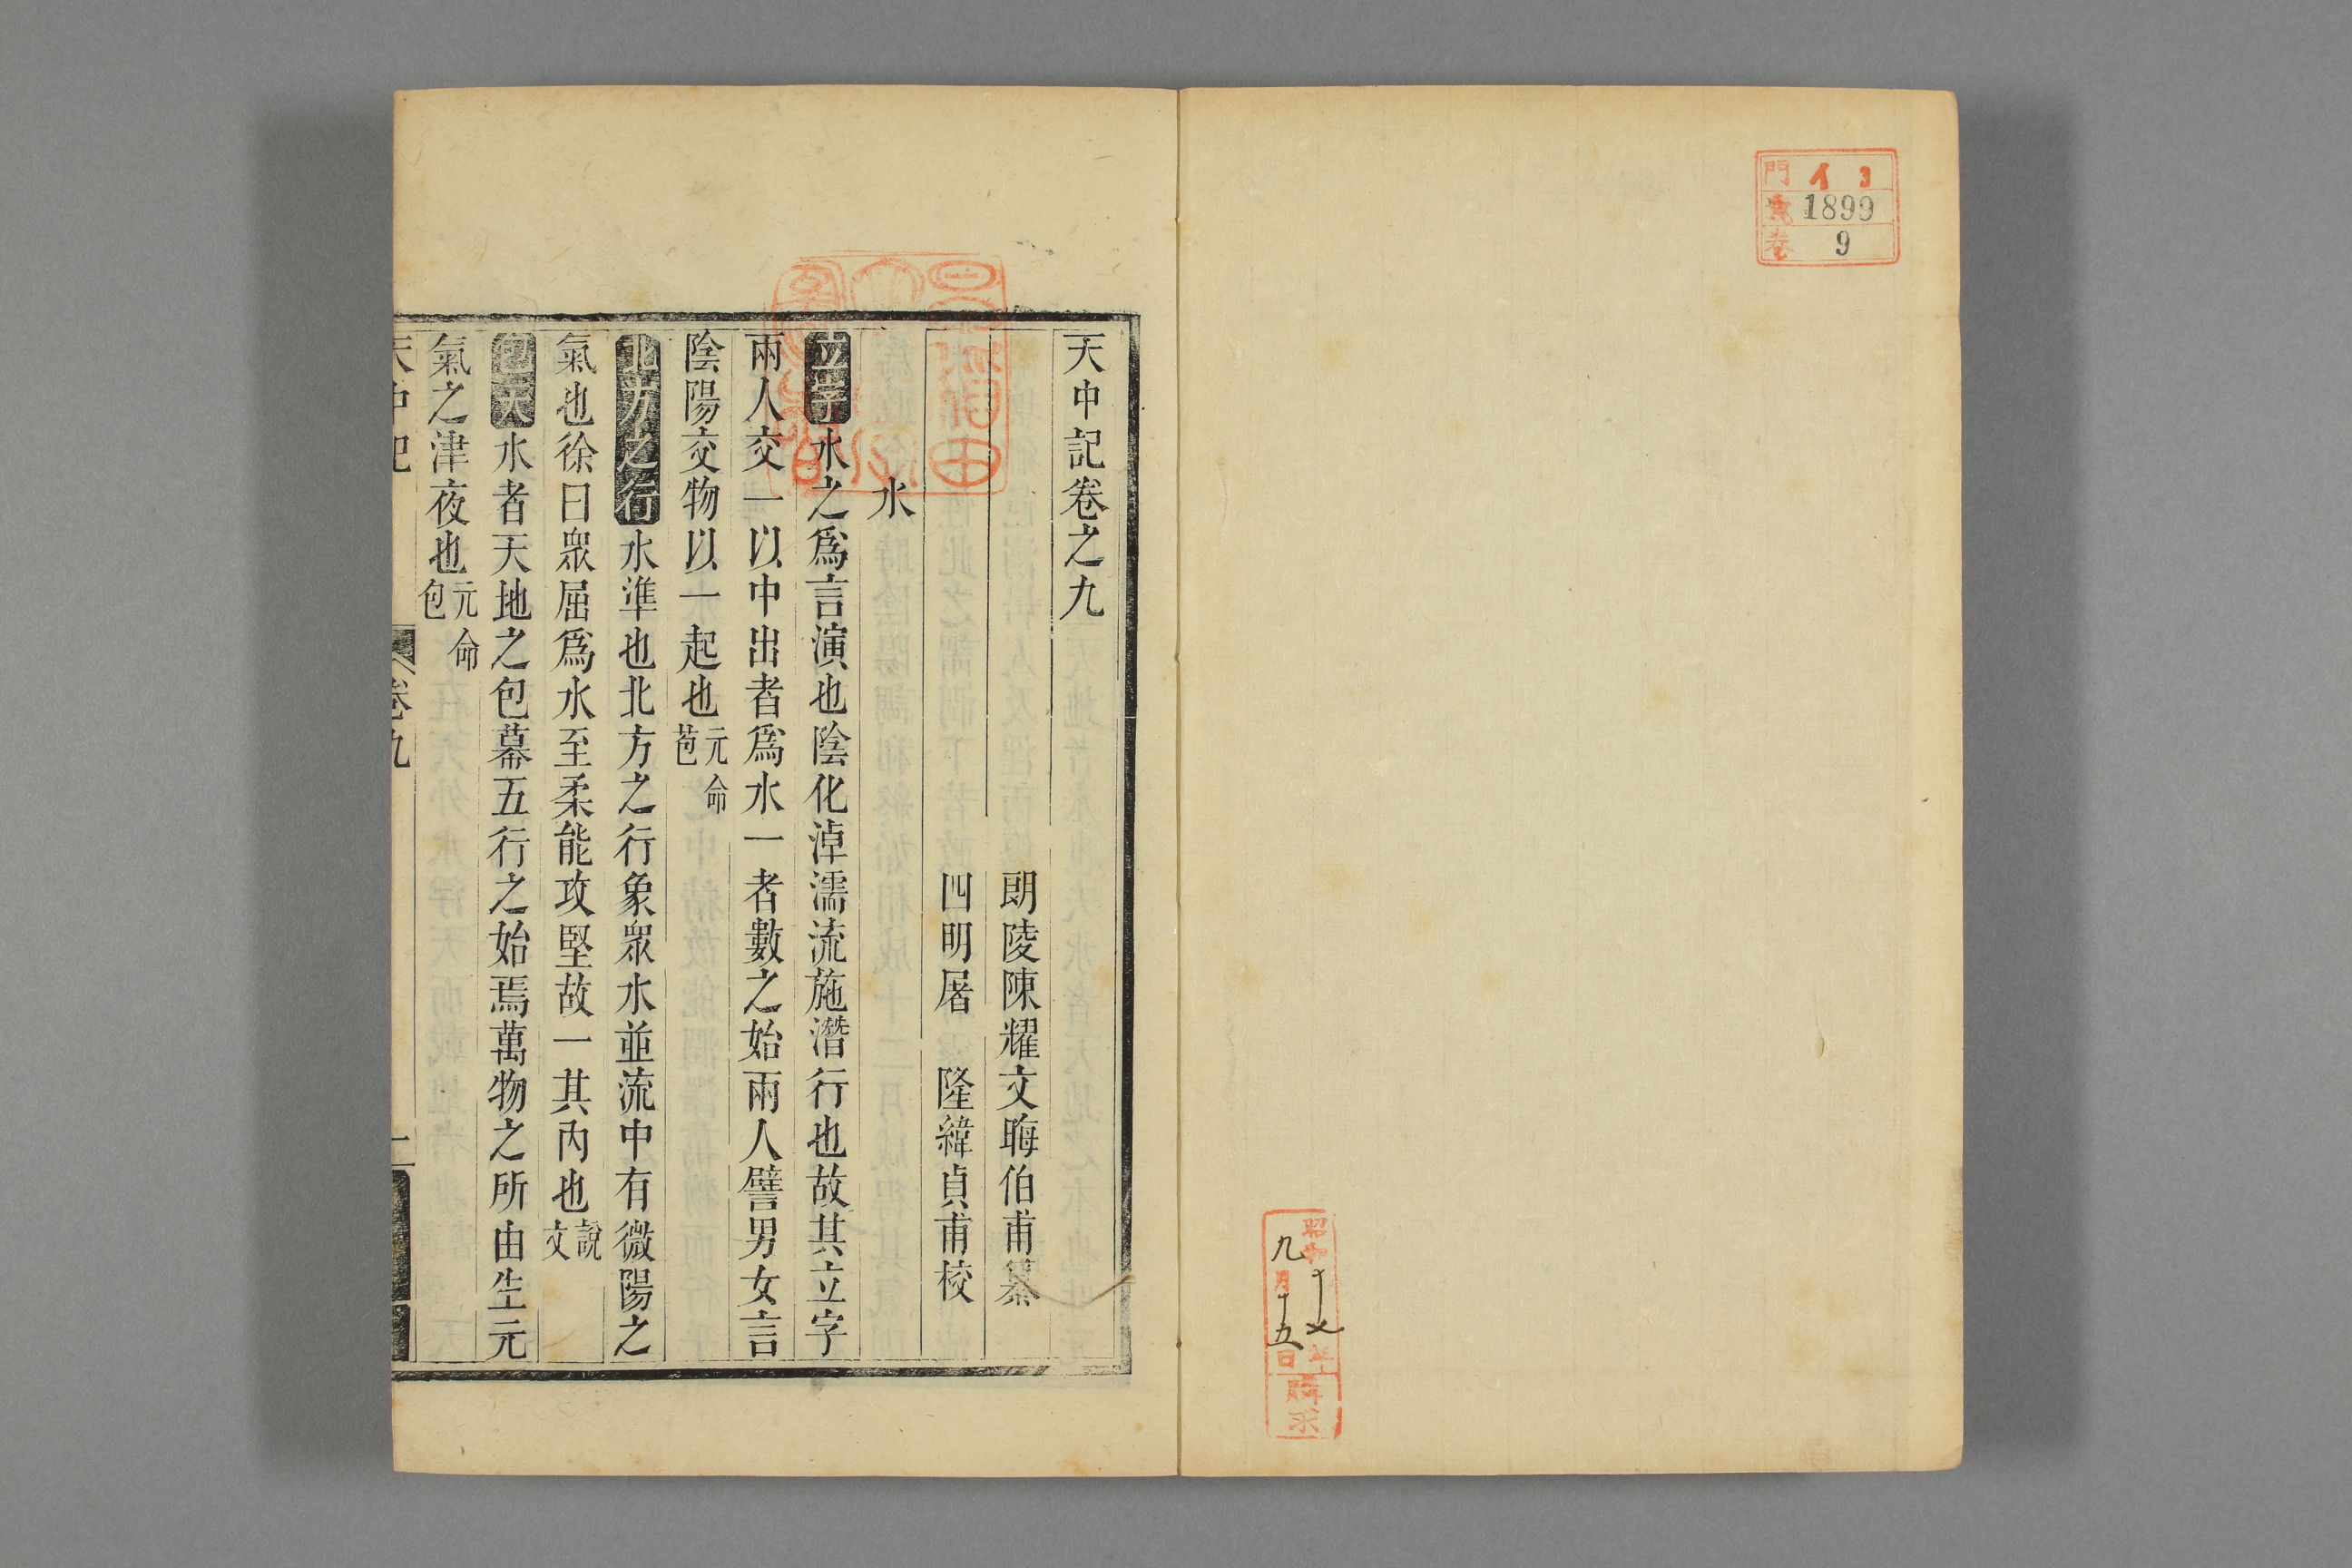 門 イ 3
號 1899
卷 9
昭和十七年
九月十五日
購求
天中記卷之九
朗陵陳耀文晦伯甫纂
四明屠 隆緯貞甫校
水
立字水之爲言演也陰化淖濡流施潛行也故其立字
兩人交一以中出者爲水一者數之始兩人譬男女言
陰陽交物以一起也元命苞
北方之行水準也北方之行象眾水並流中有微陽之
氣也徐曰眾屈爲水至柔能攻堅故一其內也說文
包天水者天地之包幕五行之始焉萬物之所由生元
氣之津夜也元命包
天中記 卷九 一